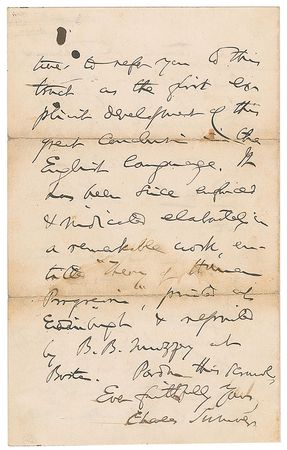 tures to refer you to this
track as the first ex-
plicit development of this
great conclusion in the
English language. It
has been since enforced
& vindicated elaborately in
a remarkable work, en-
titled "Theory of Human
Progression", printed at
Edinburgh & reprinted
by B. B. Muzzey at
Boston. Pardon this scrawl,
Ever faithfully Yours,
Charles Sumner